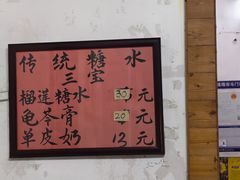 传统糖水
三宝
榴莲糖水 30元
龟苓膏 20元
单皮奶 13元